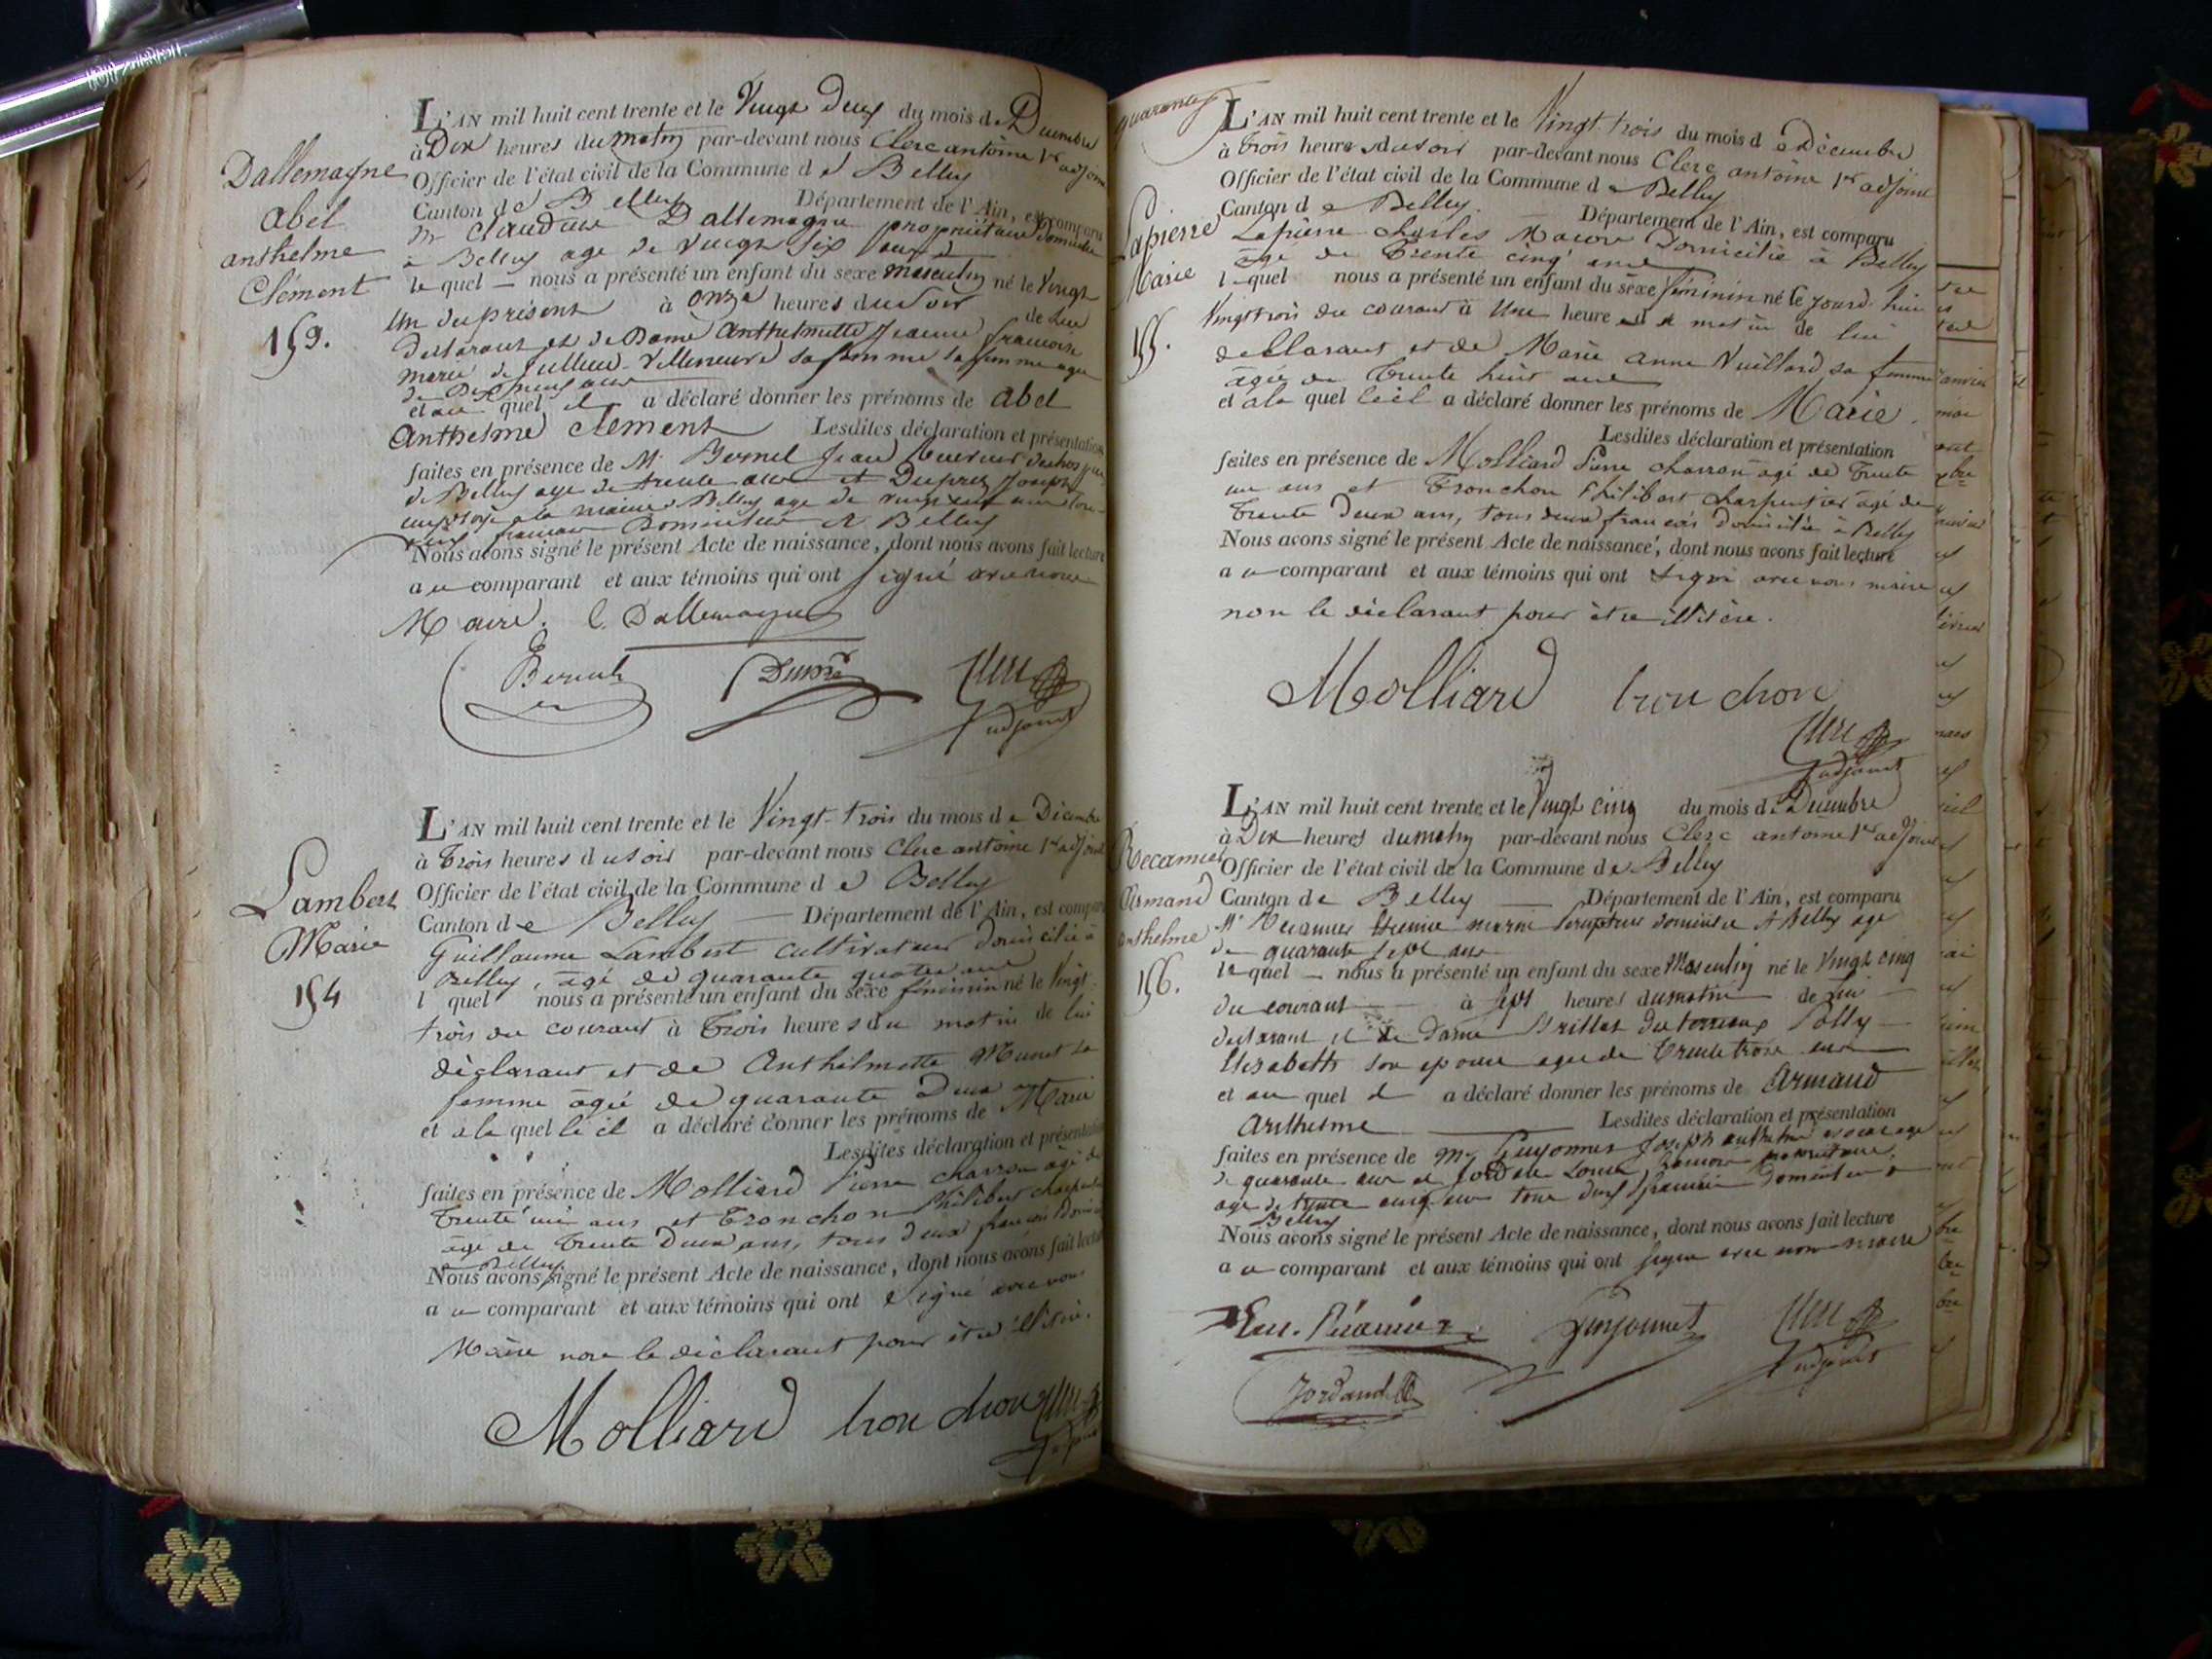 Dallemagne
abel
anthelme
Clément
153.
L'AN mil huit cent trente et le Vingt Deux du mois de Décembre
à Dix heures du matin par-devant nous Clerc antoine 1er adjoint
Officier de l'état civil de la Commune de Belley
Canton de Belley Département de l'Ain, est comparu
Mr Claudius Dallemagne propriétaire Domicilié
à Belley age de vingt six ans
lequel nous a présenté un enfant du sexe masculin né le Vingt
un du présent à onze heures du soir de lui
declarant et de Dame Anthelmette Jeanne francoise
marie de Villeneuve sa femme sa femme agee
de Dix neuf ans
et au quel il a déclaré donner les prénoms de abel
Anthelme Clément Lesdites déclaration et présentation
faites en présence de Mr Jean
de Belley age de trente ans et Duprez Joseph
employé a la mairie Belley age de
francais Domicilies a Belley
Nous avons signé le présent Acte de naissance, dont nous avons fait lecture
au comparant et aux témoins qui ont signé avec nous
Maire. C. Dallemagne
Clerc
adjoint
Lambert
Marie
154
L'AN mil huit cent trente et le Vingt-trois du mois de Décembre
à Trois heures du soir par-devant nous Clerc antoine 1er adjoint
Officier de l'état civil de la Commune de Belley
Canton de Belley Département de l'Ain, est comparu
Guillaume Lambert cultivateur domicilié à
Belley, âgé de quarante quatre ans
lquel nous a présenté un enfant du sexe féminin né le Vingt-
trois du courant à Trois heures du matin de lui
déclarant et de Anthelmette Munet sa
femme âgée de quarante deux ans
et à la quelle il a déclaré donner les prénoms de Marie
Lesdites déclaration et présentation
faites en présence de Molliard Pierre charron âgé de
Trente un ans et Tronchon Philibert charpentier
âgé de Trente Deux ans, tous deux français Domiciliés
à Belley
Nous avons signé le présent Acte de naissance, dont nous avons fait lecture
au comparant et aux témoins qui ont signé avec nous
Maire non le déclarant pour être illitére.
Molliard tronchon Clerc
adjoint
quarante
Lapierre
Marie
155.
L'AN mil huit cent trente et le Vingt-trois du mois de Décembre
à Trois heures du soir par-devant nous Clerc antoine 1er adjoint
Officier de l'état civil de la Commune de Belley
Canton de Belley. Département de l'Ain, est comparu
Lapierre Charles Macon Domicilié à Belley
âgé de Trente cinq ans
lequel nous a présenté un enfant du sexe féminin né le jourd'hui
Vingt trois du courant à Une heure du matin de lui
declarant et de Marie anne Vuillard sa femme
âgée de Trente huit ans
et à la quelle il a déclaré donner les prénoms de Marie.
Lesdites déclaration et présentation
faites en présence de Molliard Pierre charron âgé de Trente
un ans et Tronchon Philibert charpentier âgé de
Trente Deux ans, tous deux français Domiciliés à Belley
Nous avons signé le présent Acte de naissance, dont nous avons fait lecture
au comparant et aux témoins qui ont signé avec nous maire
non le déclarant pour être illitére.
Molliard tronchon
Clerc
adjoint
Recamier
Armand
anthelme
156.
L'AN mil huit cent trente et le Vingt cinq du mois de Décembre
à Dix heures du matin par-devant nous Clerc antoine 1er adjoint
Officier de l'état civil de la Commune de Belley
Canton de Belley Département de l'Ain, est comparu
Mr Recamier domicilié A Belley age
de quarante sept ans
lequel nous a présenté un enfant du sexe Masculin né le Vingt cinq
du courant à sept heures du matin de lui
declarant et de Dame Brillat Polly
Elisabeth son epouse agee de Trente trois ans
et au quel il a déclaré donner les prénoms de Armand
Anthelme Lesdites déclaration et présentation
faites en présence de Mr Joseph anthelme age
de quarante ans et Jordan Louis
age de trente cinq ans tous deux français domiciliés a
Belley
Nous avons signé le présent Acte de naissance, dont nous avons fait lecture
au comparant et aux témoins qui ont signé avec nous maire
Récamier Clerc
adjoint
Jordan